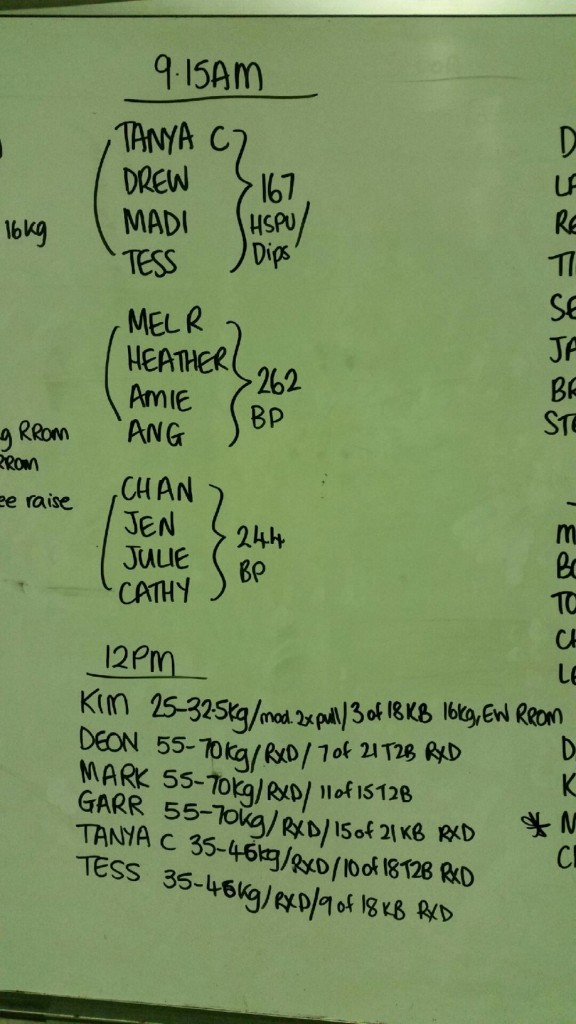 9.15AM
TANYA C
DREW
MADI
TESS
167
HSPU/
Dips
16kg
MEL R
HEATHER
AMIE
ANG
262
BP
g RROM
RROM
ee raise
CHAN
JEN
JULIE
CATHY
244
BP
12PM
KIM 25-32.5kg/mod. 2x pull/3 of 18 KB 16kg, EW RROM
DEON 55-70kg/RXD/7 of 21 T2B RXD
MARK 55-70kg/RXD/11 of 15 T2B
GARR 55-70kg/RXD/15 of 21 KB RXD
TANYA C 35-45kg/RXD/10 of 18 T2B RXD
TESS 35-45kg/RXD/9 of 18 KB RXD
D
LA
RE
TI
SE
JA
BR
STE
M
BO
TO
CH
LE
D
K
* M
CH